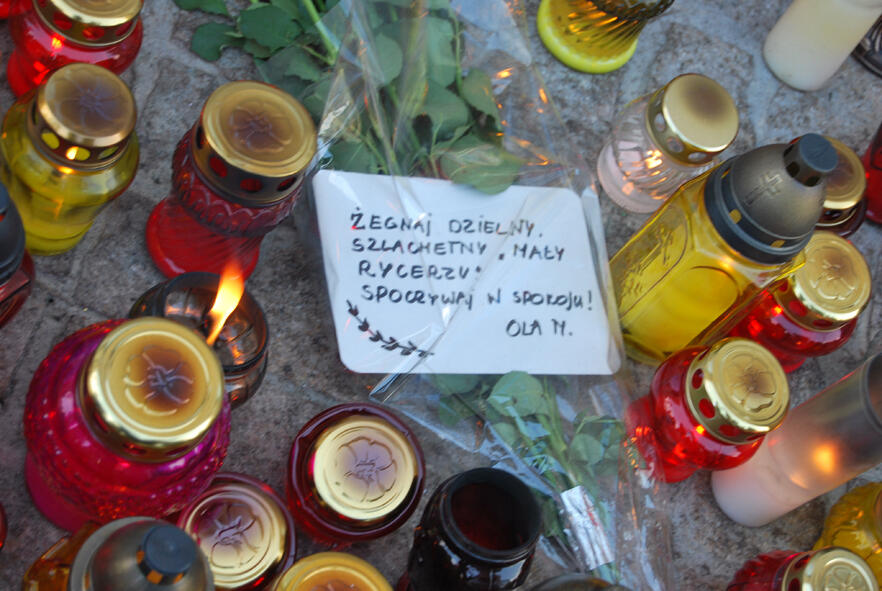 ŻEGNAJ DZIELNY,
SZLACHETNY, MAŁY
RYCERZU!
SPOCZYWAJ W SPOKOJU!
OLA M.